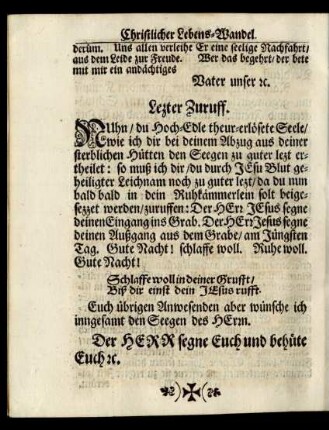 Christlicher Lebens-Wandel.
derüm. Uns allen verleihe Er eine seelige Nachfahrt/
aus dem Leide zur Freude. Wer das begehrt/ der bete
mit mir ein andächtiges
Vater unser ꝛc.
Lezter Zuruff.
NUhn/ du Hoch-Edle theur-erlösete Seele/
wie ich dir bei deinem Abzug aus deiner
sterblichen Hütten den Seegen zu guter lezt er-
theilet: so muß ich dir/du durch JEsu Blut ge-
heiligter Leichnam noch zu guter lezt/ da du nun
bald bald in dein Ruhkämmerlein solt beige-
sezzet werden/zuruffen: Der HErr JEsus segne
deinen Eingang ins Grab. Der HErr Jesus segne
deinen Außgang aus dem Grabe/ am Jüngsten
Tag. Gute Nacht! schlaffe woll. Ruhe woll.
Gute Nacht!
Schlaffe woll in deiner Grufft/
Biß dir einst dein JEsus rufft.
Euch übrigen Anwesenden aber wünsche ich
inngesamt den Seegen des HErrn.
Der HERR segne Euch und behüte
Euch ꝛc.